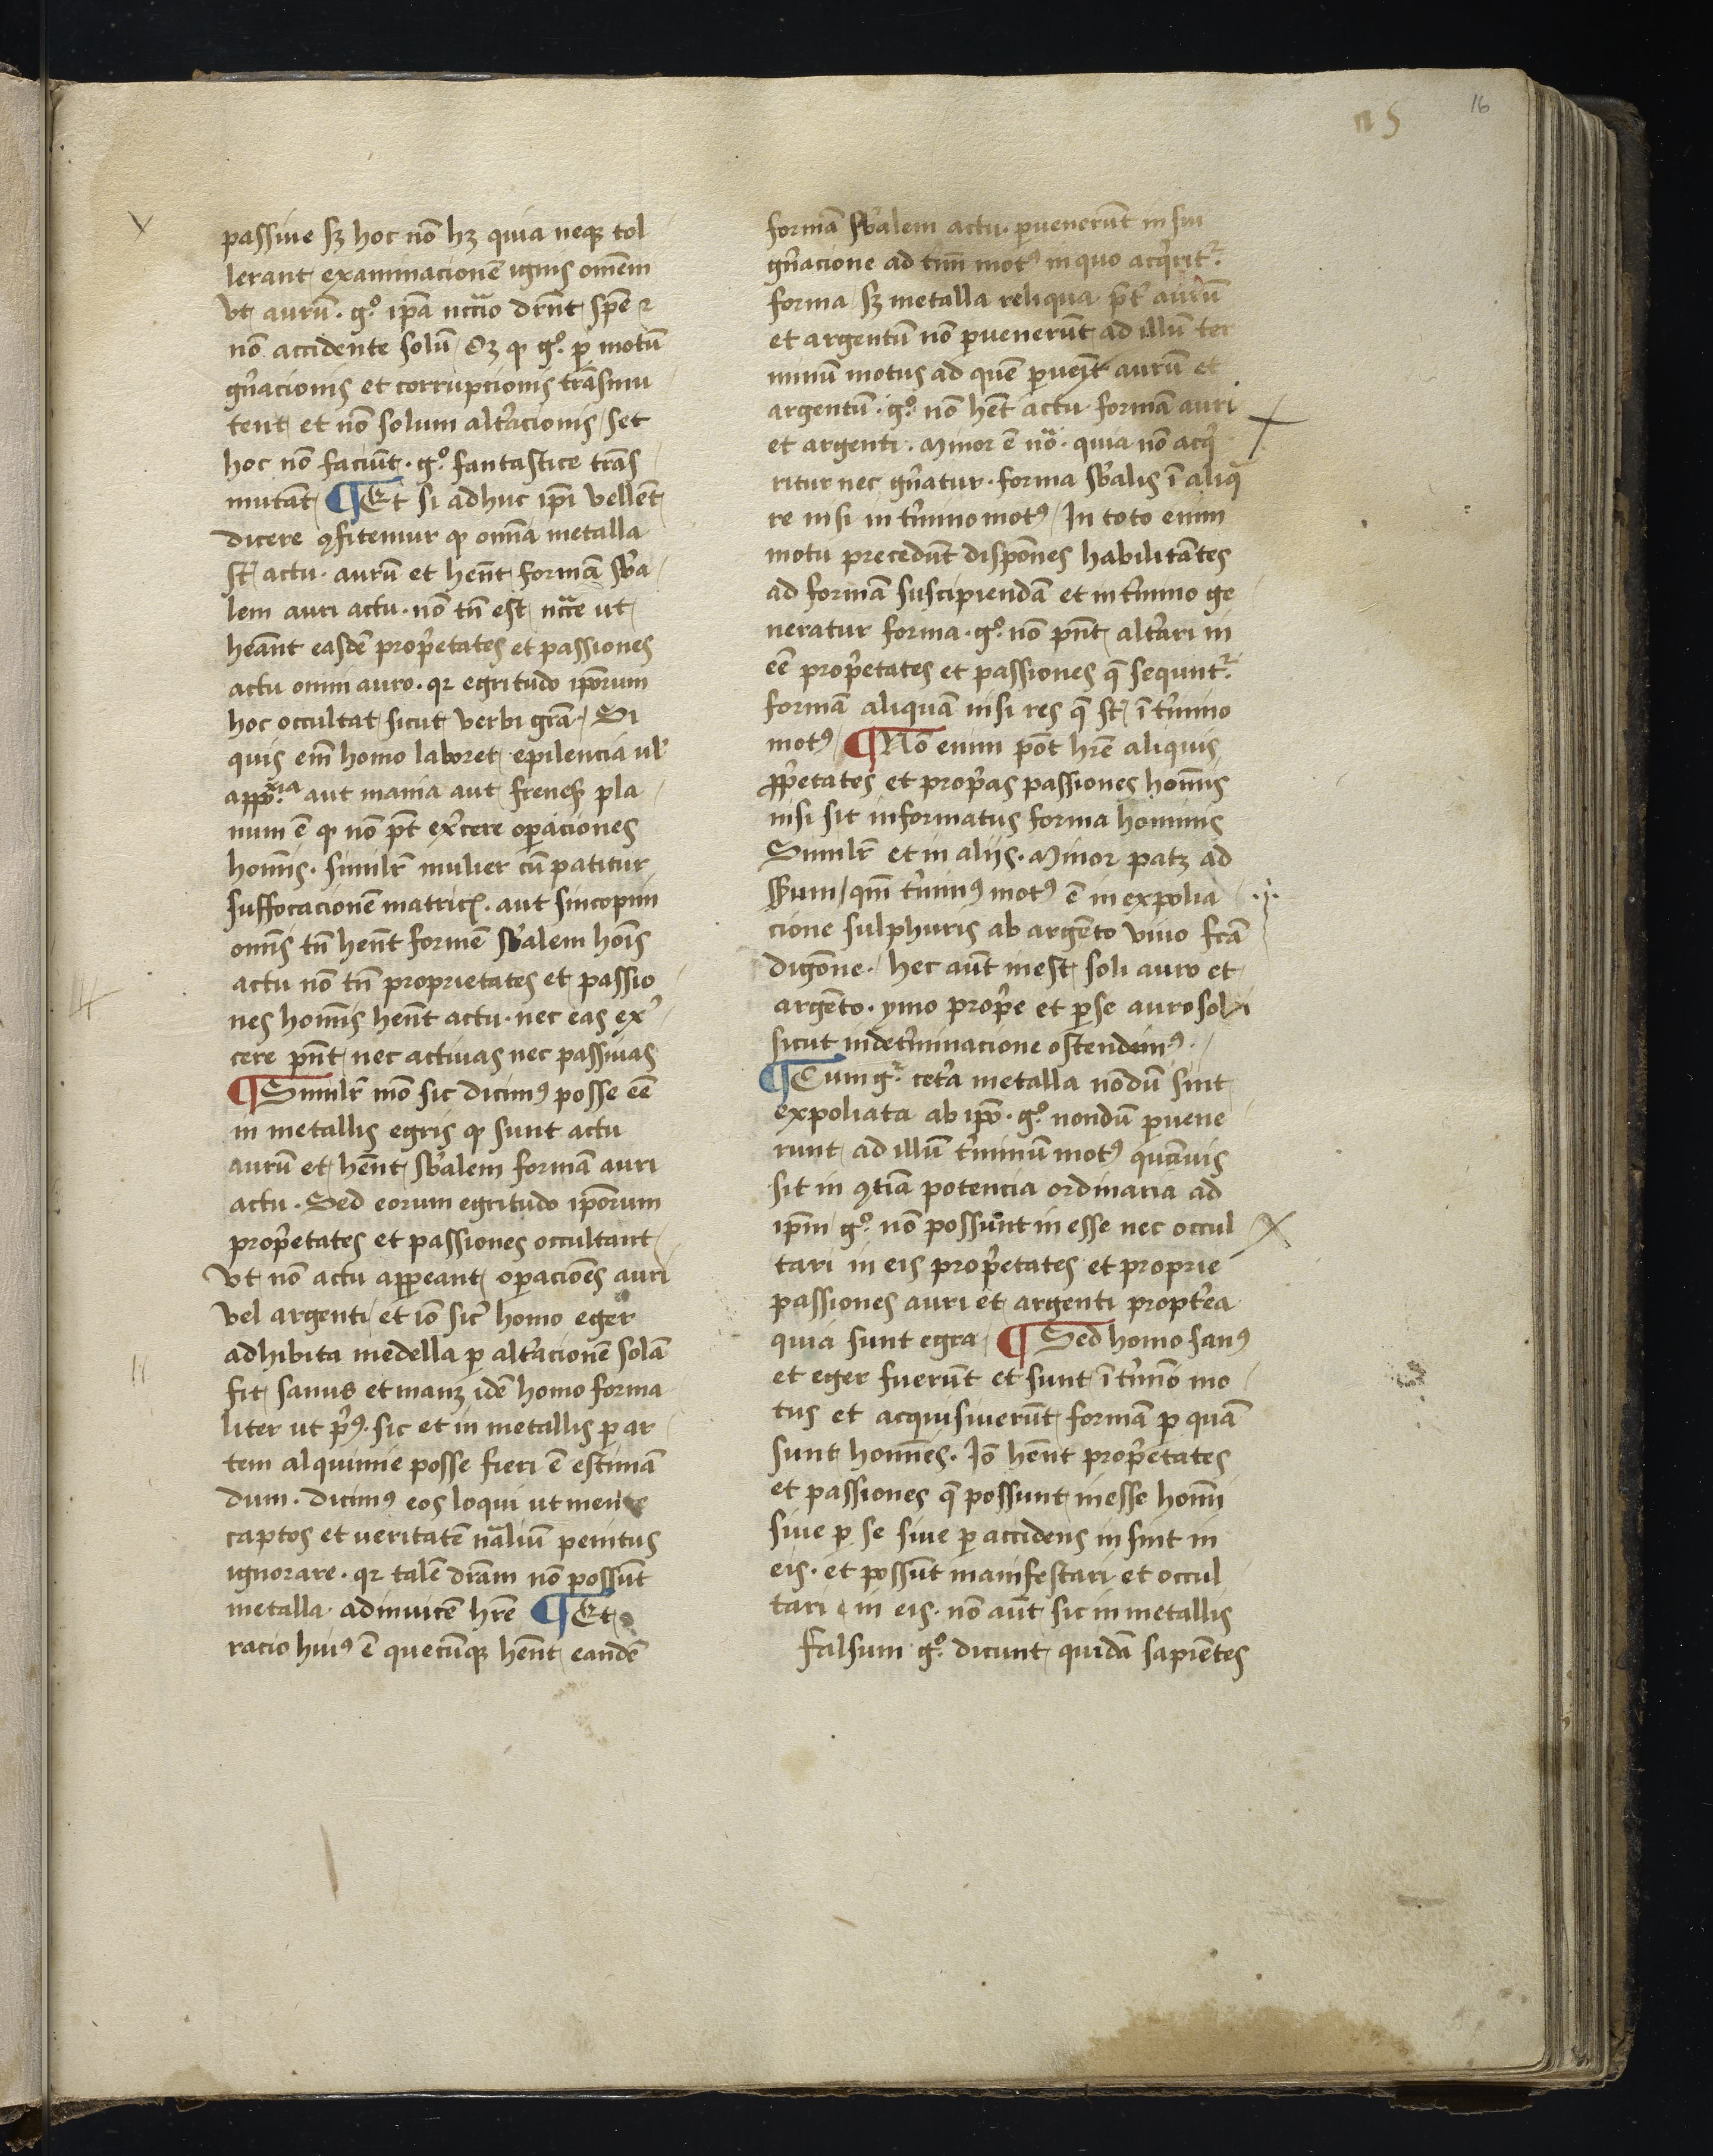 16
n 5
passiue sꝫ hoc nō hꝫ quia neqꝫ tol
lerant examinacionē ignis omēm
vt aurū · gͦ · ip̄a nccͣio dr̄nt sp̄e ⁊
nō accidente solū / Oꝫ ꝙ gͦ · ꝑ motū
gn̄acionis et corrupcionis trāsmu
tent et nō solum altͣacionis / set
hoc nō faciūt · gͦ · fantastice trās
mutāt ¶ Et si adhuc ip̄i vellēt
dicere ꝯfitemur ꝙ om̄ia metalla
st̄ actu · aurū et hēnt formā sb̄a
lem auri actu · nō tn̄ est nccͣe ut
heānt easdē prop̓etates et passiones
actu omni auro · qꝛ egritudo ip̄orum
hoc occultat sicut verbi grā · Si
quis em̄ homo laboret epilencia ul̓
aut mania aut frenes̄ pla
num ē ꝙ nō pt̄ ex̓cere oꝑaciones
homīs · similr̄ mulier cū patitur
suffocacionē matric̄ · aut sincopim
omīs tn̄ hēnt formē sb̓alem hoīs
actu nō tn̄ proprietates et passio
nes homīs hēnt actu · nec eas ex̓
cere pn̄t nec actiuas nec passiuas
¶ Similr̄ mō sic dicimꝰ posse eē
in metallis egris ꝙ sunt actu
aurū et hēnt sb̓alem formā auri
actu · Sed eorum egritudo ip̄orum
prop̓etates et passiones occultant
vt nō actu apꝑeant oꝑacionēs auri
vel argenti / et iō sic̓ homo eger
adhibita medella ꝑ alt̓acionē solā
fit sanus et manꝫ idē homo forma
liter ut p̓ꝰ · sic et in metallis ꝑ ar
tem alquimie posse fieri ē estimā
dum · dicimꝰ eos loqui ut mente
captos et veritatē nāliū penitus
ignorare · qꝛ talē dr̄am nō possūt
metalla adinuicē hr̄e ¶ Et
racio huiꝰ ē quecūqꝫ hēnt eandē
formā sb̓alem actu · ꝑuenerūt in sui
gn̄acione ad t̓mī motꝰ in quo acq̓rit᷑ ·
forma / sꝫ metalla reliqua p̄t̓ aurū
et argentū nō ꝑuenerūt ad illū ter
minū motus ad quē ꝑueīt aurū et
argentū · gͦ · nō hēt actu formā auri
et argenti · Minor ē nͣo · quia nō acq̓
ritur nec gn̄atur · forma sb̓alis ī aliqͣ
re nisi in t̓mino motꝰ / In toto enim
motu precedūt disponēs habilitātes
ad formā suscipiendā et in t̓mino ge
neratur forma · gͦ · nō pn̄t alt̓ari in
eē prop̓etates et passiones q̄ sequnt᷑
formā aliquā nisi res q̄ st̄ ī t̓mino
motꝰ / ¶ Nō enim pōt hr̄e aliquis
ꝓp̓etates et prop̓as passiones homīs
nisi sit informatus forma hominis
Similr̄ et in alijs · Minor patꝫ ad
sensum / qm̄ t̓minꝰ motꝰ ē in expolia
cione sulphuris ab argēto viuo fcā
digōne · hec aūt inest soli auro et
argēto · ymo prop̓e et ꝑ se auro soli
sicut in det̓minacione ostendimꝰ ·
¶ Cum g᷑ · cet̓a metalla nōdū sint
expoliata ab ip̄o · gͦ · nondū ꝑuene
runt ad illū t̓minū motꝰ quāuis
sit in ꝯtīa potencia ordinaria ad
ip̄m gͦ · nō possunt in esse nec occul
tari in eis prop̓etates et proprie
passiones auri et argenti propt̓ea
quia sunt egra ¶ Sed homo sanꝰ
et eger fuerūt et sunt ī t̓mīo mo
tus et acquisiuerūt formā ꝑ quā
sunt homīes · Iō hēnt prop̓etates
et passiones q̄ possunt inesse homīi
siue ꝑ se siue ꝑ accidens in sint in
eis · et possūt manifestari et occul
tari in eis · nō aūt sic in metallis
Falsum gͦ · dicunt quidā sapiētes